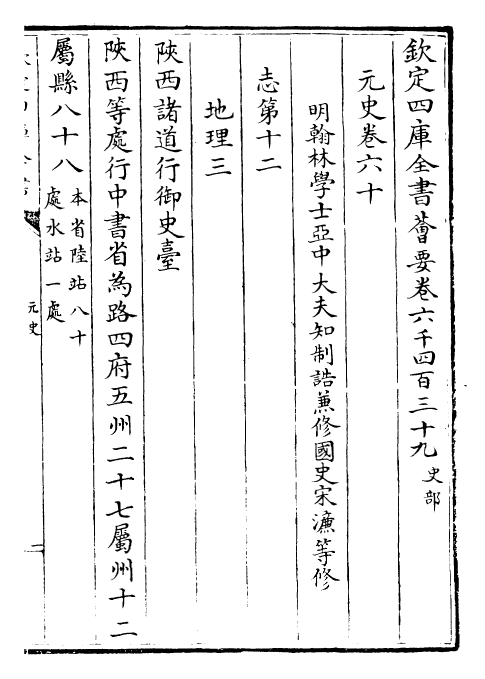 欽定四庫全書薈要卷六千四百三十九 史部
元史卷六十
明翰林學士亞中大夫知制誥兼修國史宋濂等修
志第十二
地理三
陝西諸道行御史臺
陝西等處行中書省為路四府五州二十七屬州十二
屬縣八十八 本省陸站八十
處水站一處
元史